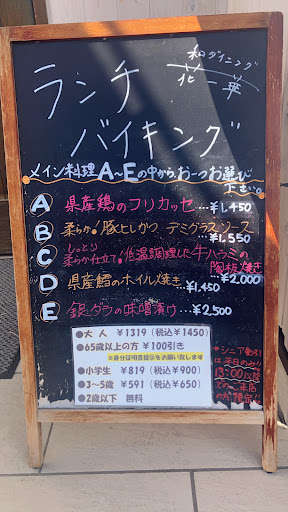 和ダイニング
花華
ランチ
バイキング
メイン料理A〜Eの中からお一つお選び
下さい。
A 県産鶏のフリカッセ…¥1,450
B 柔らか!豚ヒレかつ デミグラスソース
…¥1,550
C しっとり
柔らか仕立!低温調理した牛ハラミの
陶板焼き
…¥2,000
D 県産鱈のホイル焼き
…¥1,450
E 銀ダラの味噌漬け…¥2,500
●大人 ¥1319(税込¥1450)
●65歳以上の方 ¥100引き
※身分証明書提示をお願い致します
●小学生 ¥819(税込¥900)
●3〜5歳 ¥591(税込¥650)
●2歳以下 無料
シニア割引
は平日のみ
13:00以降
でのご来店
の方限定!!